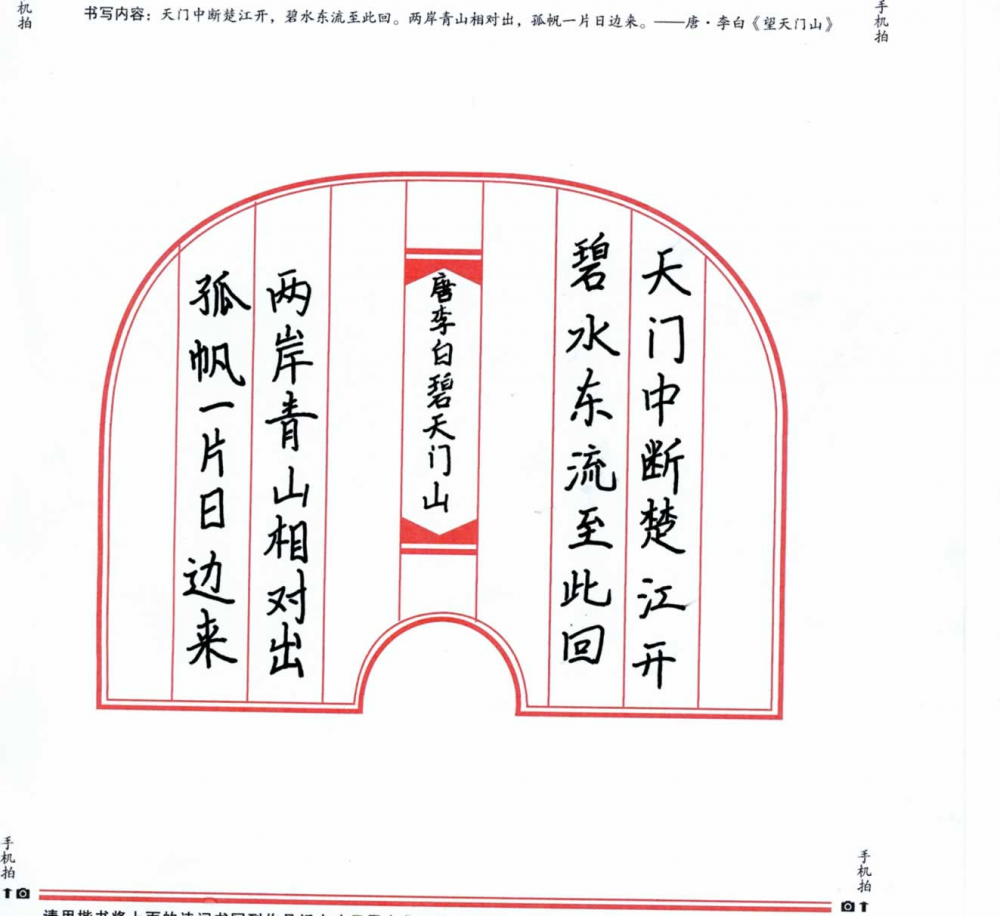 手机拍
手机拍
书写内容：天门中断楚江开，碧水东流至此回。两岸青山相对出，孤帆一片日边来。——唐·李白《望天门山》
天门中断楚江开
碧水东流至此回
唐李白碧天门山
两岸青山相对出
孤帆一片日边来
手机拍
手机拍